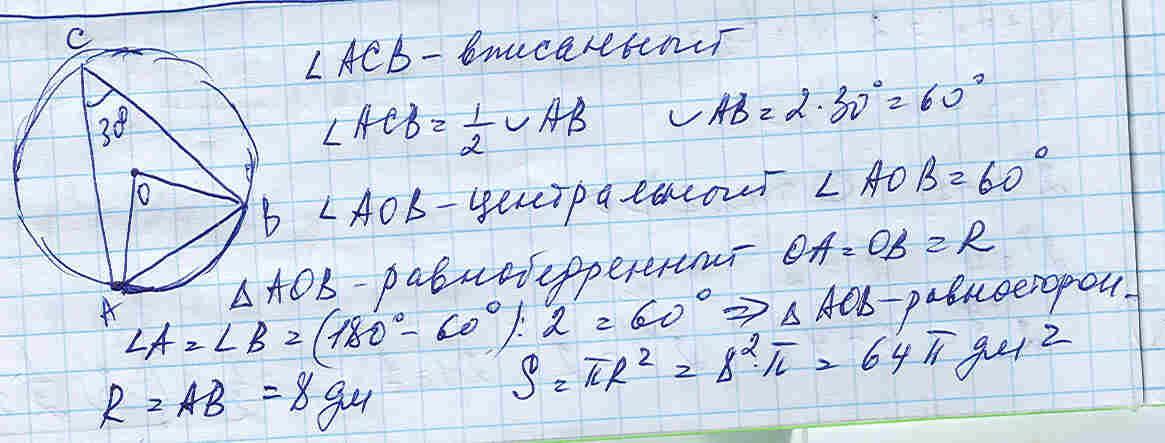 C
∠ACB - вписанный
30°
∠ACB = 1/2 ◡AB ◡AB = 2·30° = 60°
O
B
∠AOB - центральный ∠AOB = 60°
△AOB - равнобедренный OA = OB = R
A
∠A = ∠B = (180° - 60°) : 2 = 60° ⇒ △AOB - равносторон-
R = AB = 8 дм S = πR² = 8²·π = 64π дм²